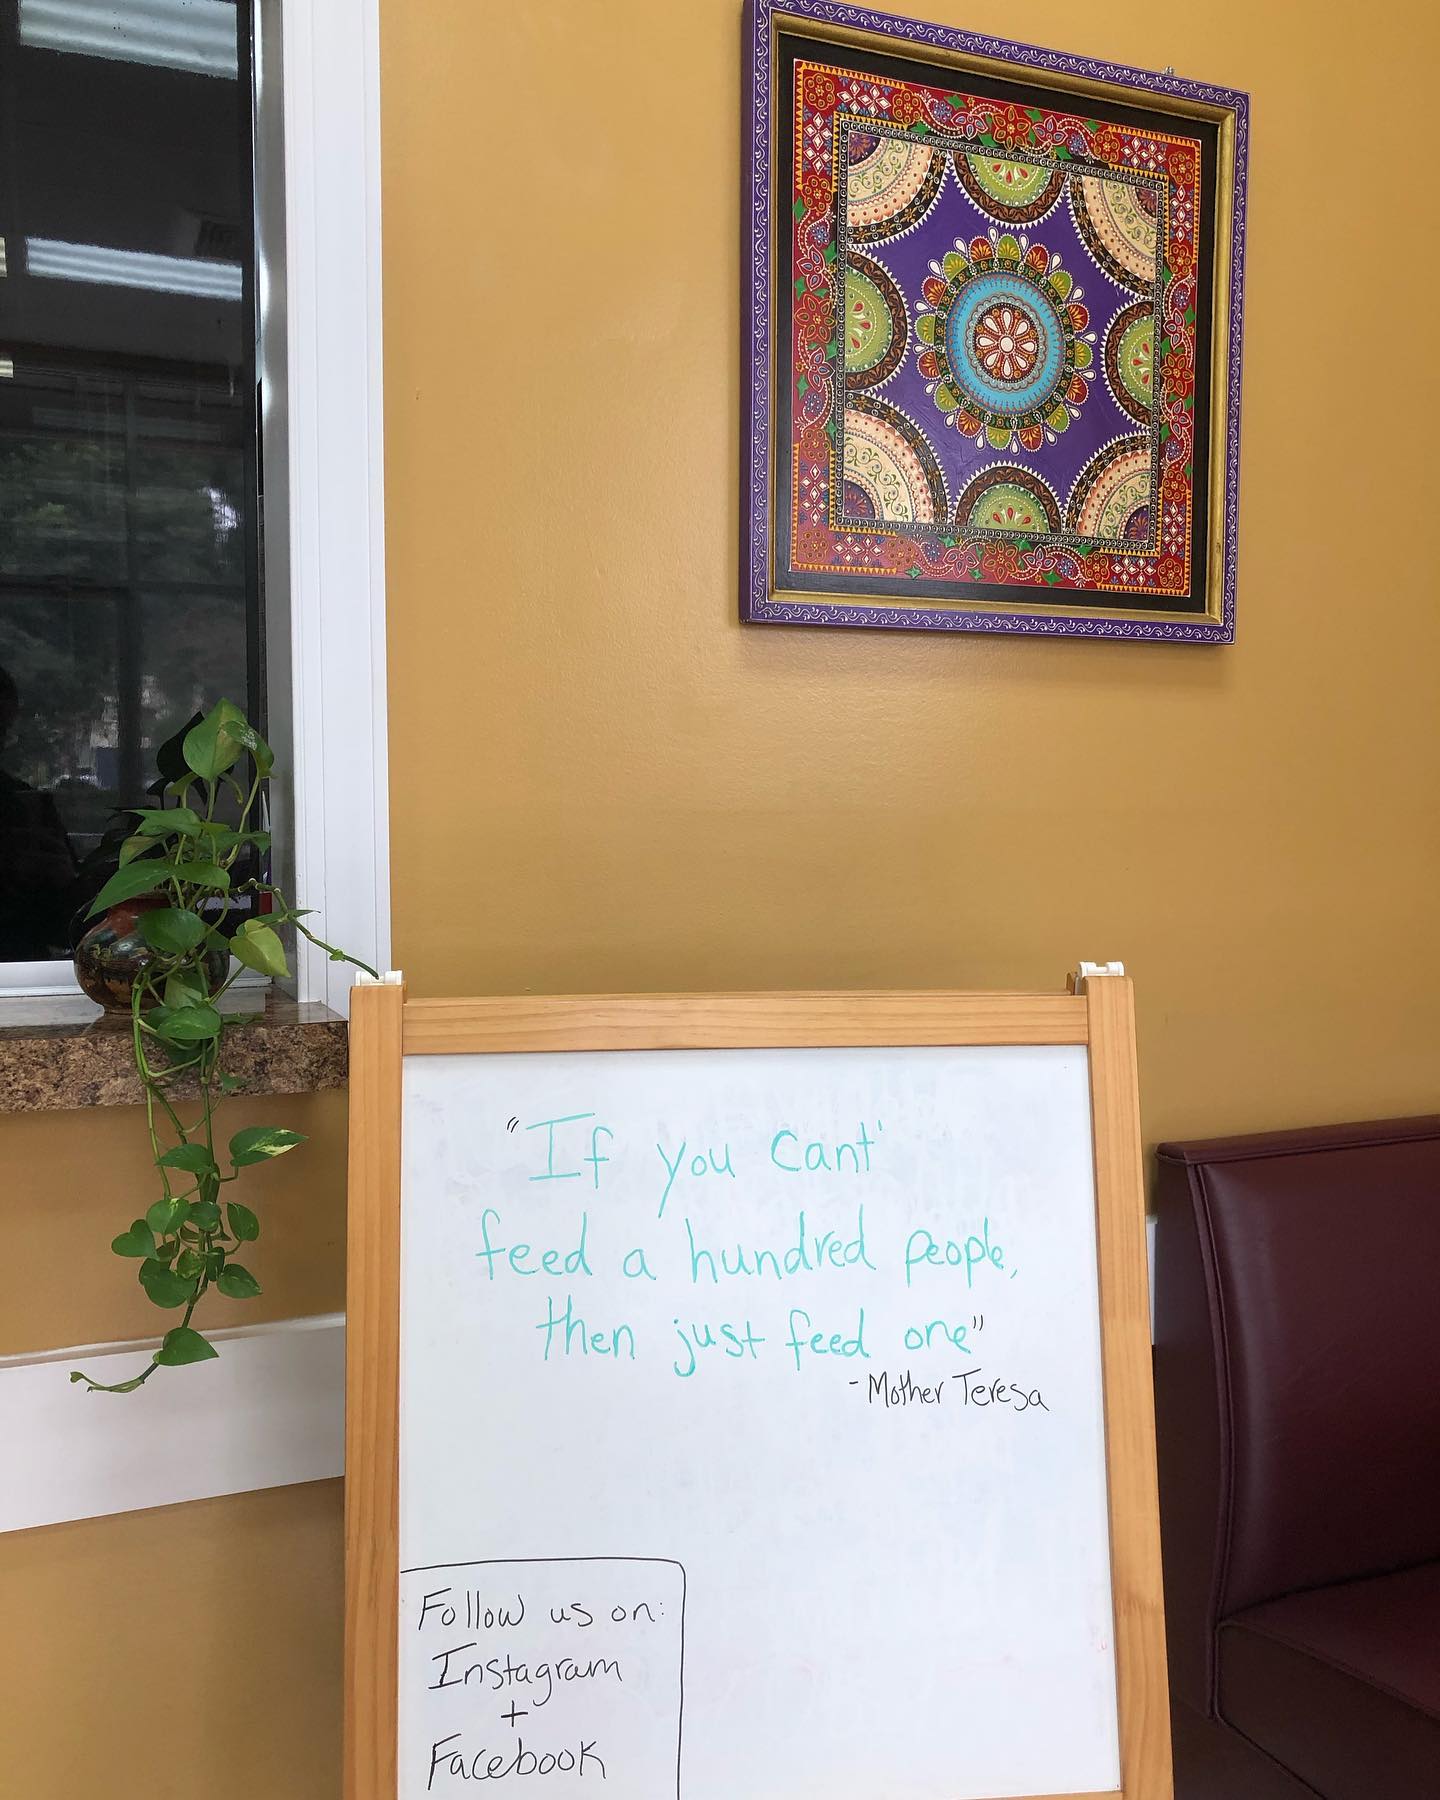 "If you cant'
feed a hundred people,
then just feed one"
- Mother Teresa
Follow us on:
Instagram
+
Facebook